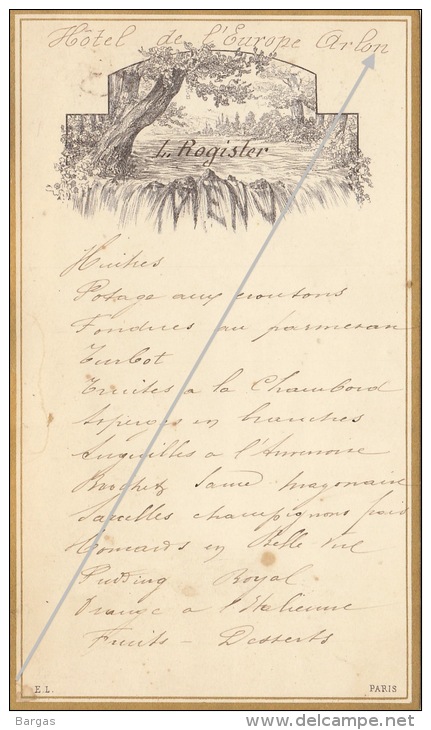 Hôtel de l'Europe Arlon
L. Rogister
MENU
Huitres
Potage aux croutons
Fondues au parmesan
Turbot
Truites a la Chambord
Asperges en branches
Anguilles a l'
Brochet sauce mayonaise
Sarcelles champignons frais
Homards en Belle Vue
Pudding Royal
Orange a l'Italienne
Fruits - Desserts
E.L.
PARIS
Bargas
delcampe.net